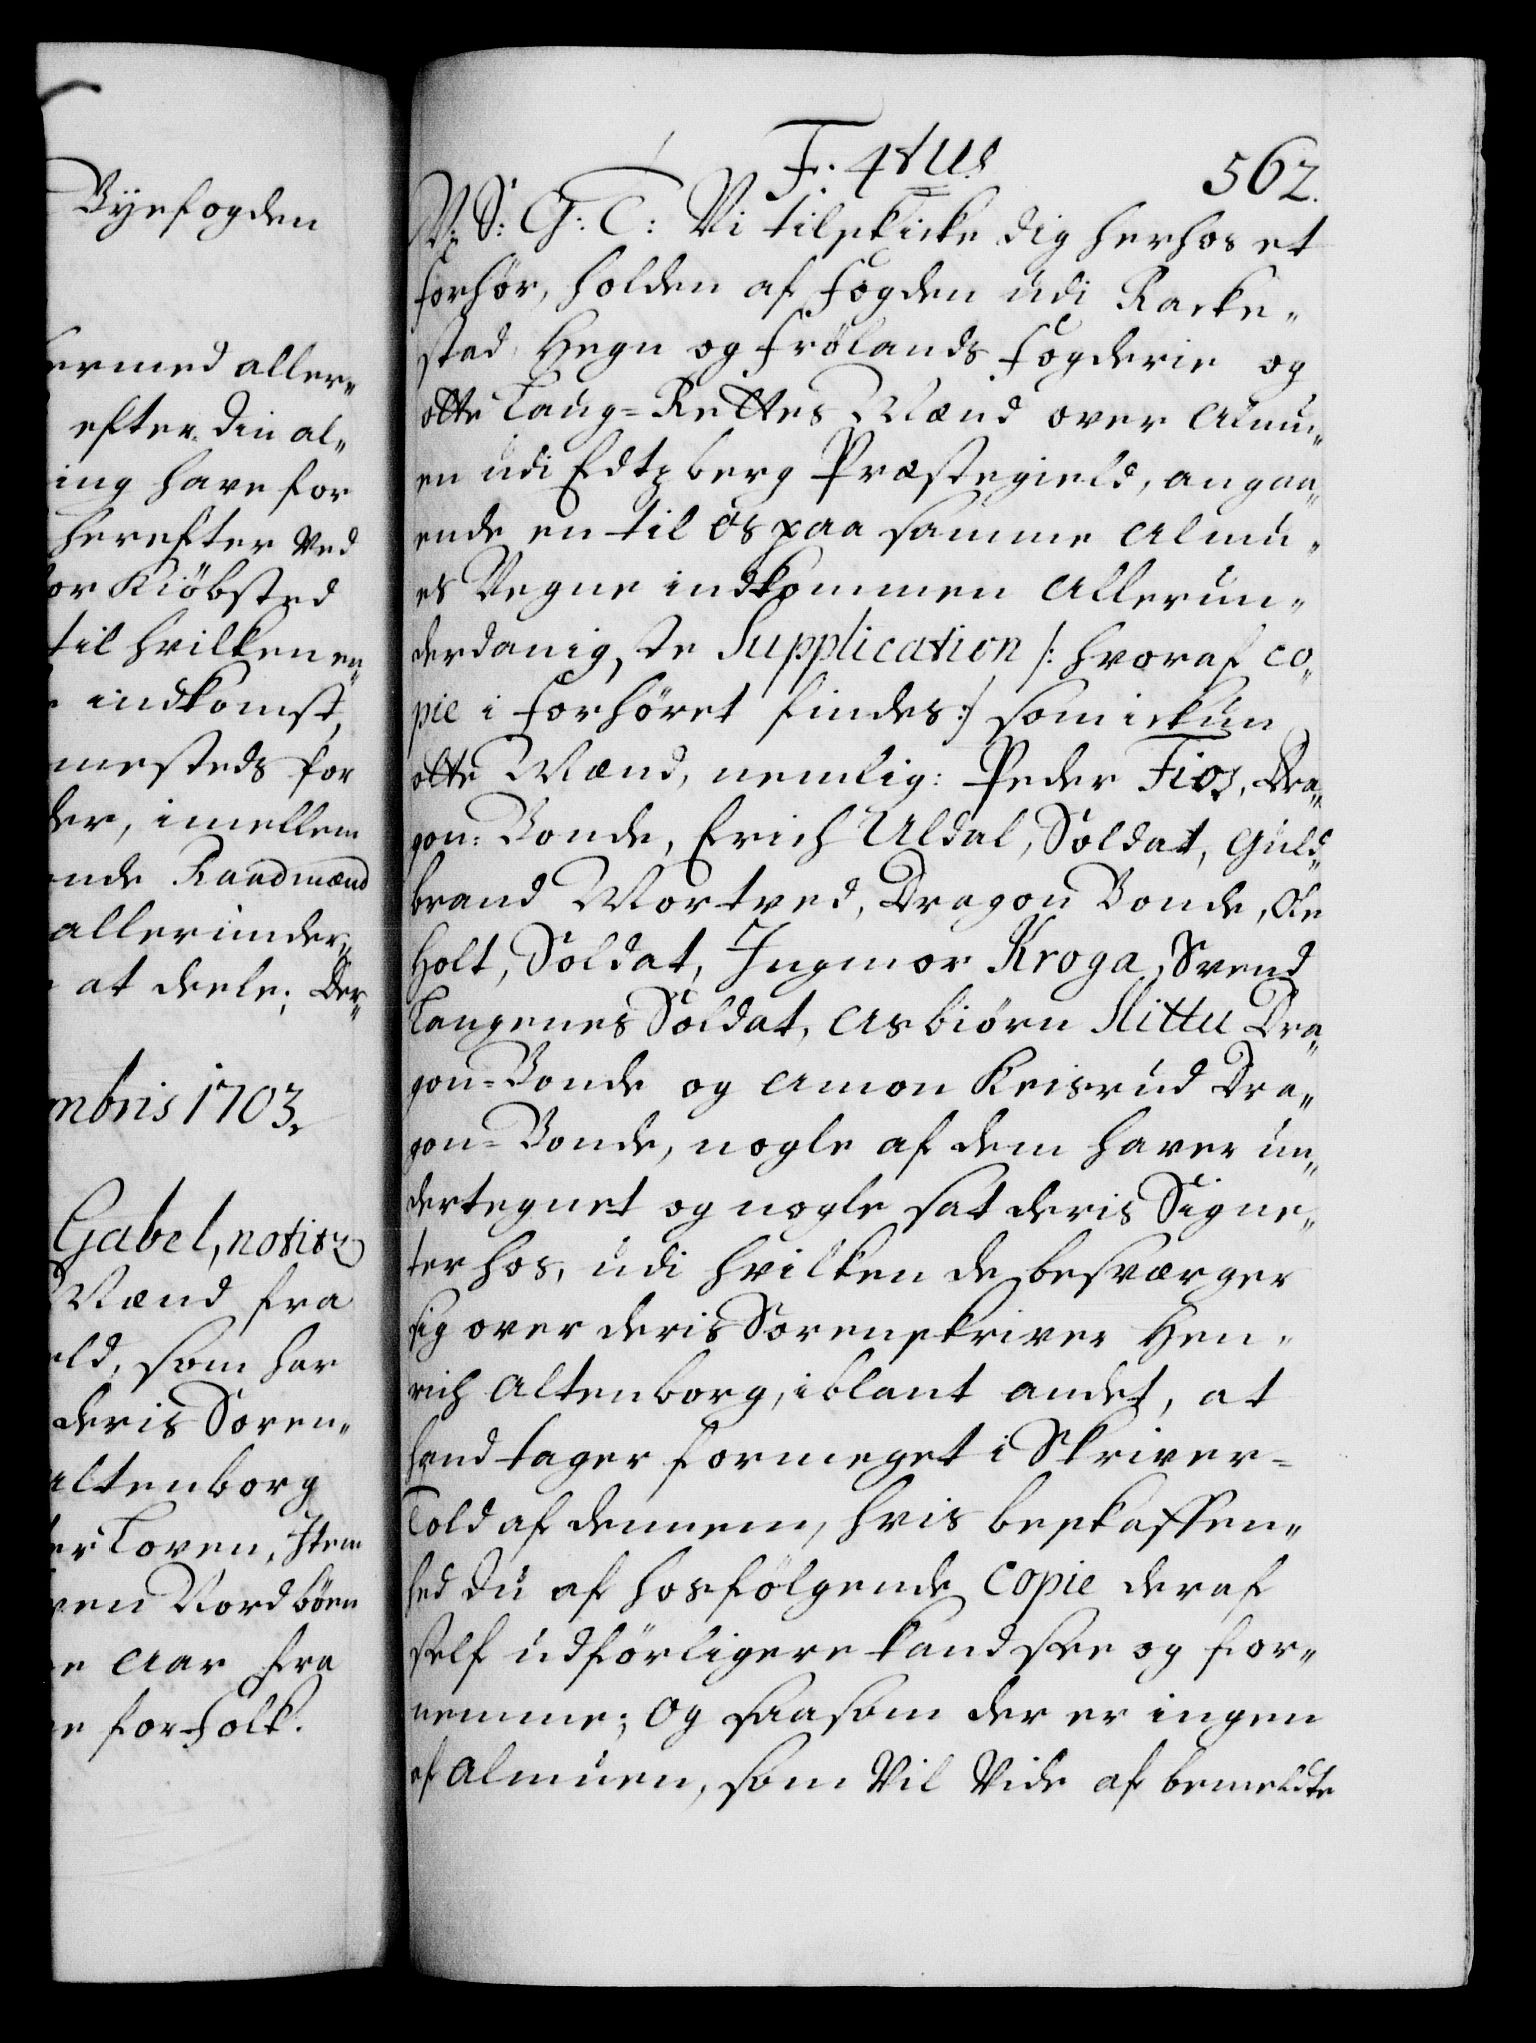 Byefogden
ermed aller„
efter din al„
ing have for
herefter ved
or Kiöbsted
til hvilken en„
indkomst,
mesteds for
der, imellem
nde Raadmænd
allerunder„
at deele; Der„
mbris 1703.
Gabel, notitz
Mænd fra
eld, som har
deris Soren„
Altenborg
er Loven, Item
ven Nordböen
e Aar fra
e forholt.
F. 4tus
562.
V: S: G: T: Vi tilskicke dig herhos et
forhör, holden af fogden udi Racke„
stad, Hegn og frölands fogderie og
otte Laug=Rettes Mænd over Almu„
en udi Edtzberg Præstegield, angaa„
ende en til Os paa samme Almu„
es Vegne indkommen Allerun„
derdanigste Supplication /: hvoraf co„
pie i forhöret findes :/ som ickun
otte Mænd, nemlig: Peder Fios, Dra„
gon=Bonde, Erich Uldal, Soldat, Guld„
brand Mortved, Dragon Bonde, Ole
Holt, Soldat, Ingmor Kroga, Svend
Langenes Soldat, Asbiörn Slittu Dra„
gon=Bonde og Amon Krisrud Dra„
gon=Bonde, nogle af dem haver un„
dertegnet og nogle sat deris Signe„
ter hos, udi hvilken de besværger
sig over deris Sorenskriver Hen„
rich Altenborg, iblant andet, at
hand tager formeget i Skriver=
Told af dennem, hvis beskaffen„
hed du af hosfölgende Copie deraf
self udförligere kand see og for„
nemme; Og saasom der er ingen
af Almuen, som Vil Vide af bemeldte